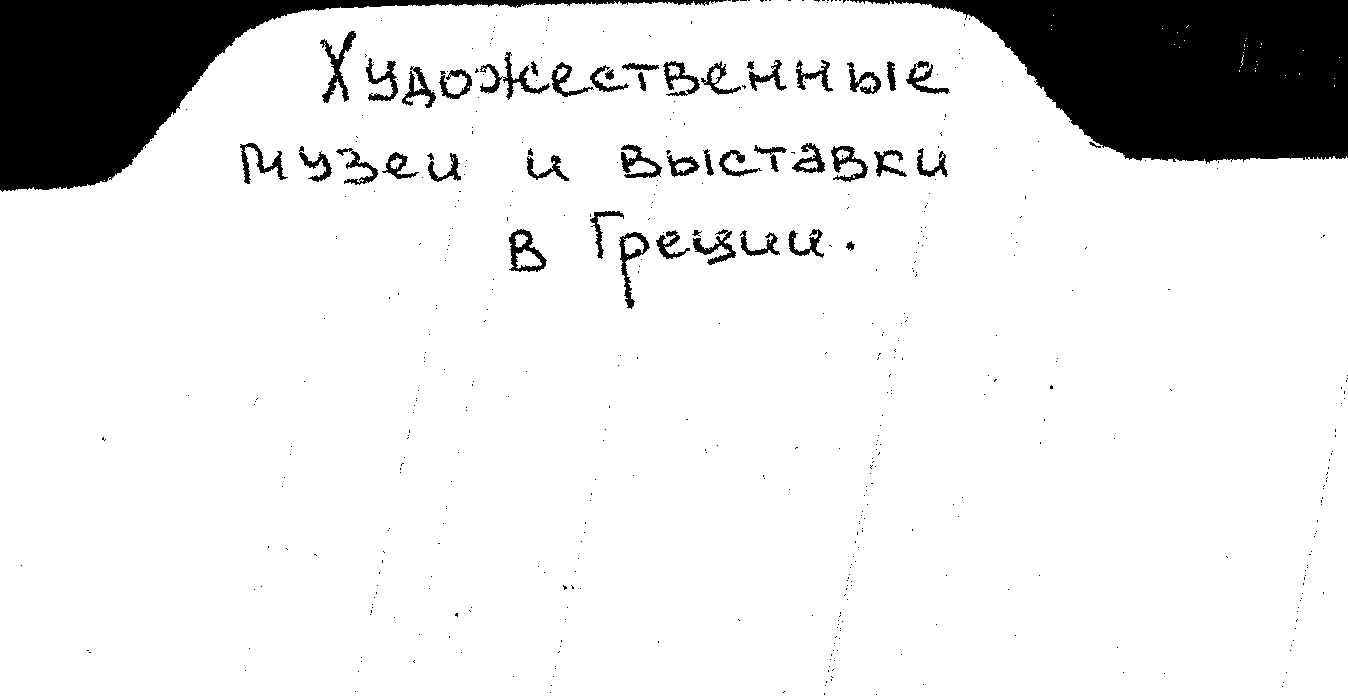 Художественные
музеи и выставки
в Греции.